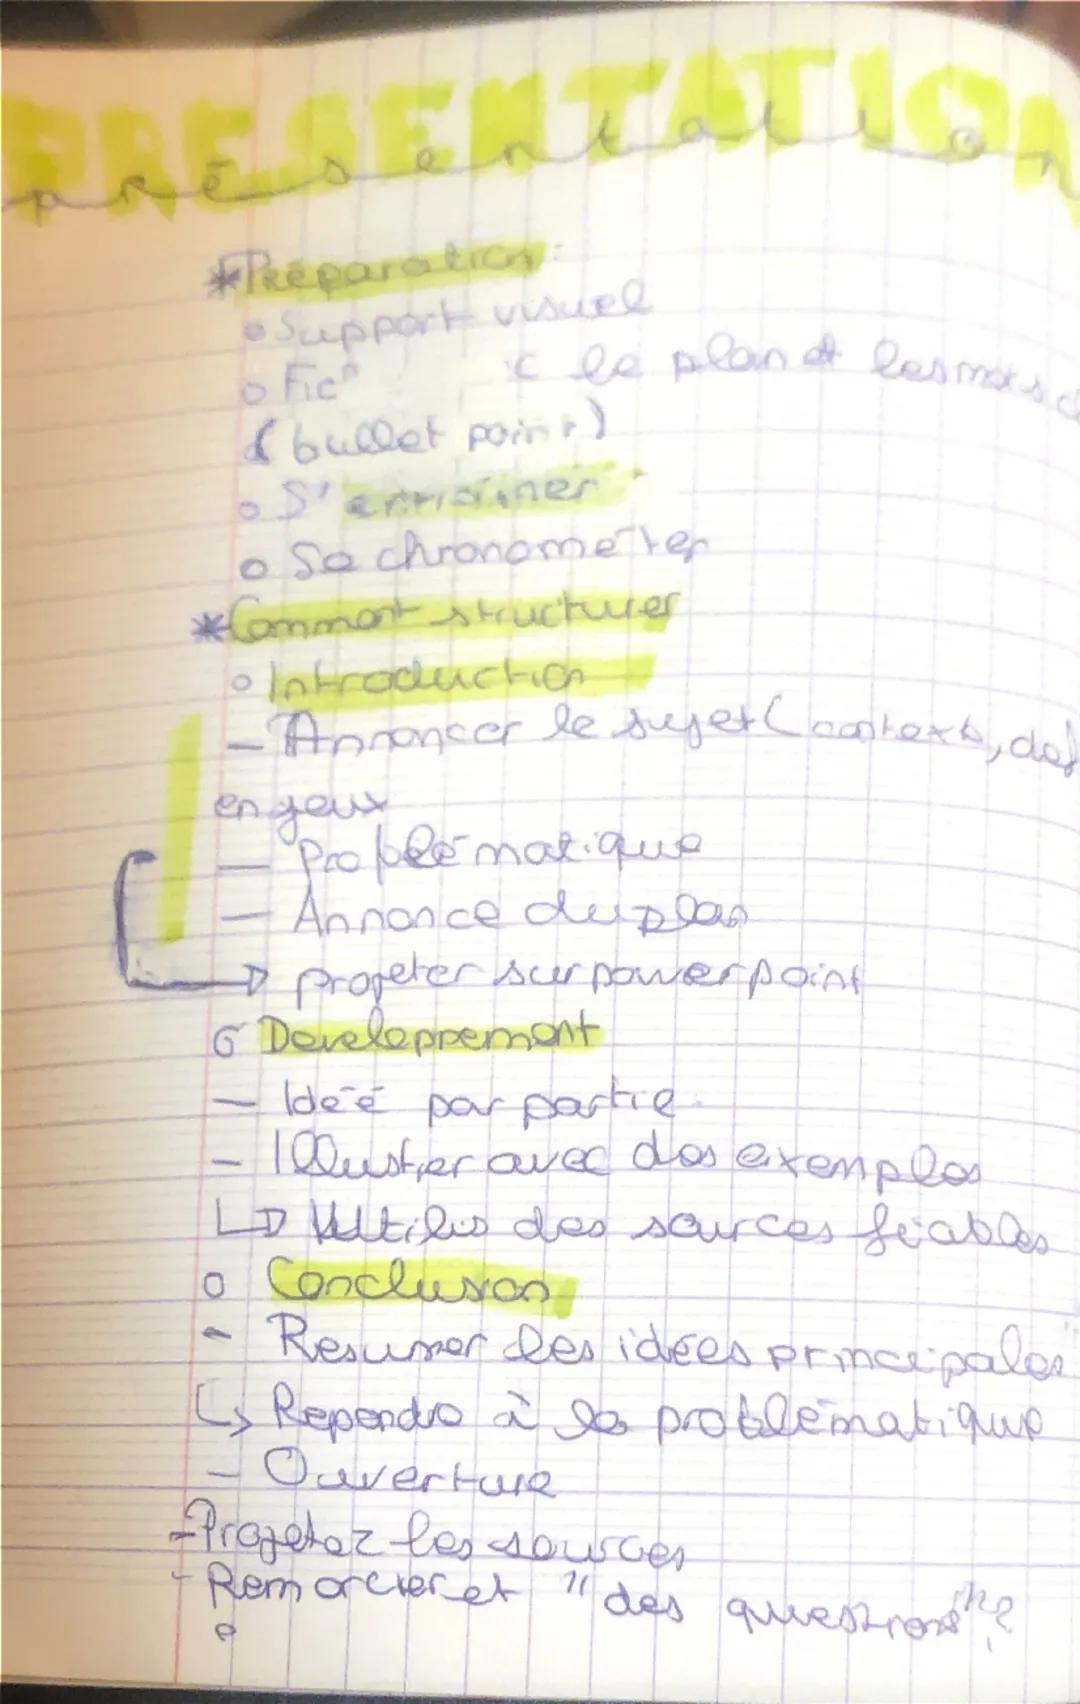 PRESENTATION
présentation
*Préparation:
o Support visuel
o Fic le plan et les mots
(bullet point)
o S'entraîner
o Se chronométrer
*Comment structurer
o Introduction
- Annoncer le sujet (contexte,
enjeux
- Problématique
- Annonce du plan
→ projeter sur powerpoint
o Developpement
- Idée par partie
- Illustrer avec des exemples
↳ Utilis des sources fiables
o Conclusion
- Resumer les idées principales
↳ Repondre à la problématique
- Ouverture
- Projetez les sources
- Remercier et "des questions"?